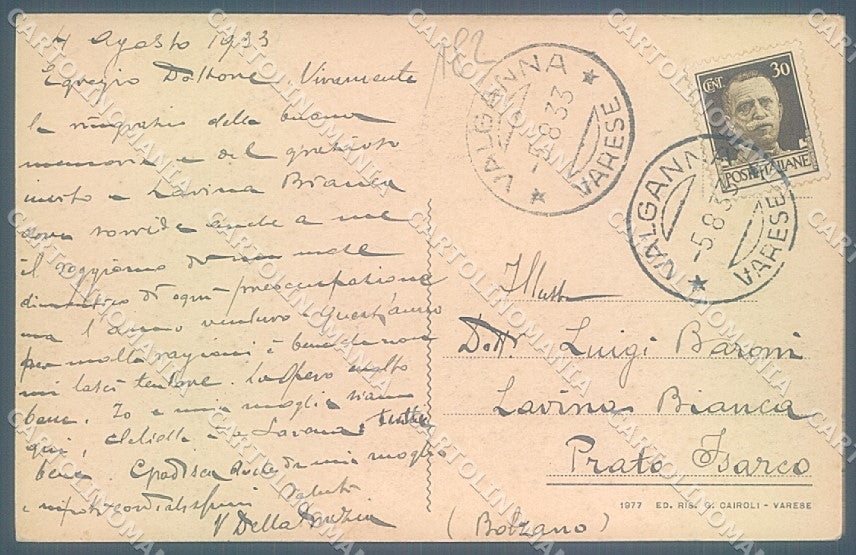 4 Agosto 1933
Egregio Dottore Vivamente
la ringrazio della buona
memoria e del grazioso
invito a Lavina Bianca
dove sorride anche a me
il soggiorno di un male
di ogni preoccupazione
ma l'anno venturo. Quest'anno
per molte ragioni è bene che non
mi lasci tentare. La spero molto
bene. Io e mia moglie siamo
qui, a Savona e tutti
bene. Gradisca anche da mia moglie
e nipoti cordialissimi saluti
V Della
182
VALGANNA
-5.8.33
VARESE
CENT. 30
POSTE ITALIANE
VALGANNA
-5.8.33
VARESE
Illust
Dott. Luigi Baroni
Lavina Bianca
Prato Isarco
(Bolzano)
1977 ED. RIS. G. CAIROLI - VARESE
CARTOLINOMANIA